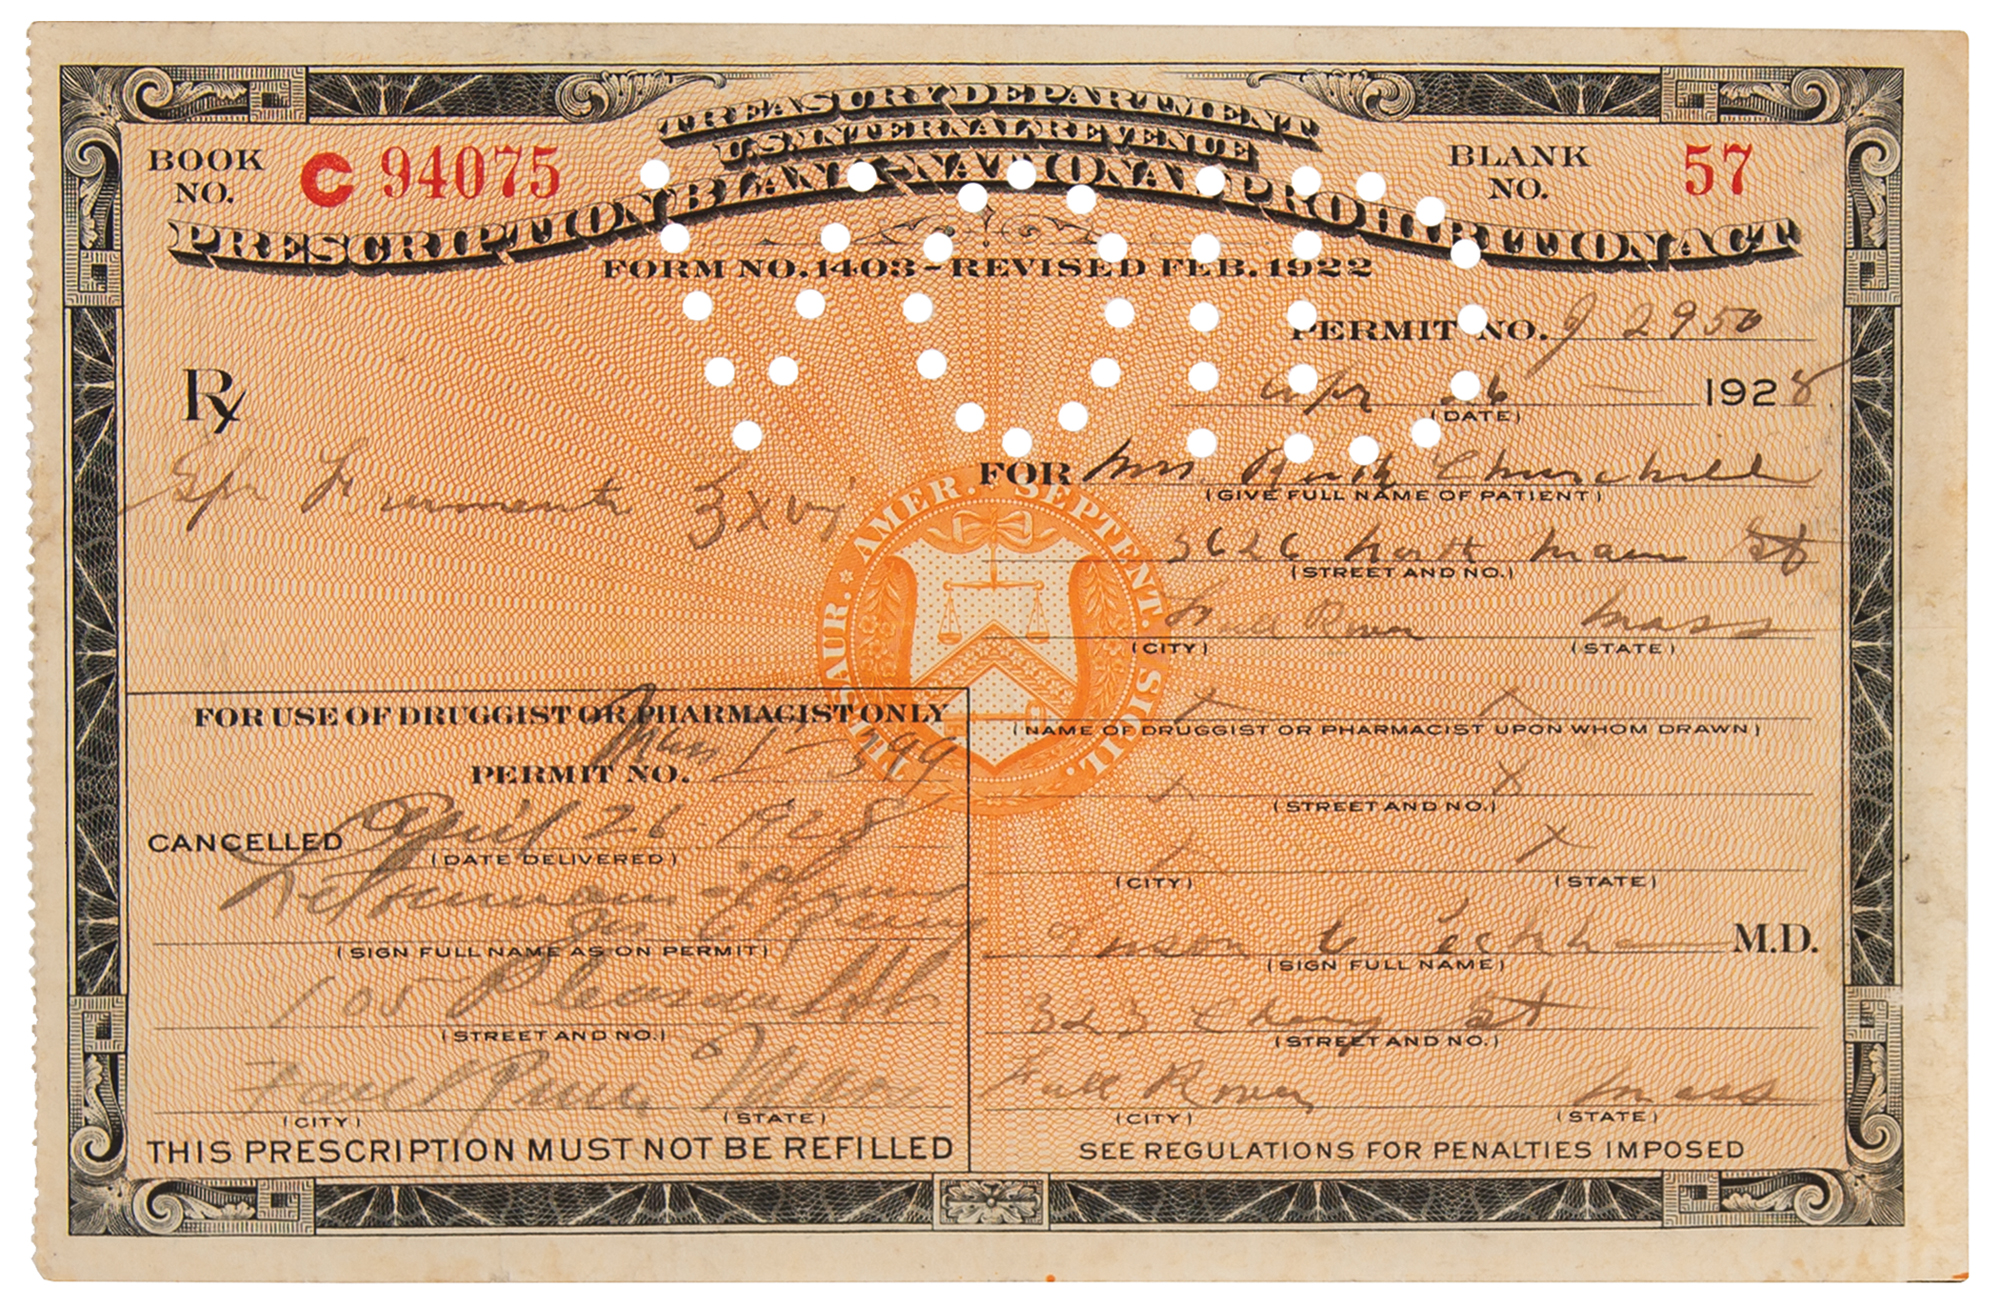 TREASURY DEPARTMENT
U.S. INTERNAL REVENUE
PRESCRIPTION BLANK-NATIONAL PROHIBITION ACT
BOOK NO. C 94075
BLANK NO. 57
FORM NO. 1403 - REVISED FEB. 1922
VOID
PERMIT NO. J 2950
Apr 26 1928
(DATE)
Rx
FOR Mrs. Ruth Churchill
(GIVE FULL NAME OF PATIENT)
Spr Frumenti ʒxvj
3626 North Main St
(STREET AND NO.)
Fall River Mass
(CITY) (STATE)
x x
(NAME OF DRUGGIST OR PHARMACIST UPON WHOM DRAWN)
x x
(STREET AND NO.)
x x
(CITY) (STATE)
M.D.
(SIGN FULL NAME)
323 St
(STREET AND NO.)
Fall River Mass
(CITY) (STATE)
SEE REGULATIONS FOR PENALTIES IMPOSED
FOR USE OF DRUGGIST OR PHARMACIST ONLY
PERMIT NO. Mass L-399
CANCELLED April 26 1928
(DATE DELIVERED)
(SIGN FULL NAME AS ON PERMIT)
105 Pleasant St
(STREET AND NO.)
Fall River Mass
(CITY) (STATE)
THIS PRESCRIPTION MUST NOT BE REFILLED
THESAUR. AMER. SEPTENT. SIGIL.